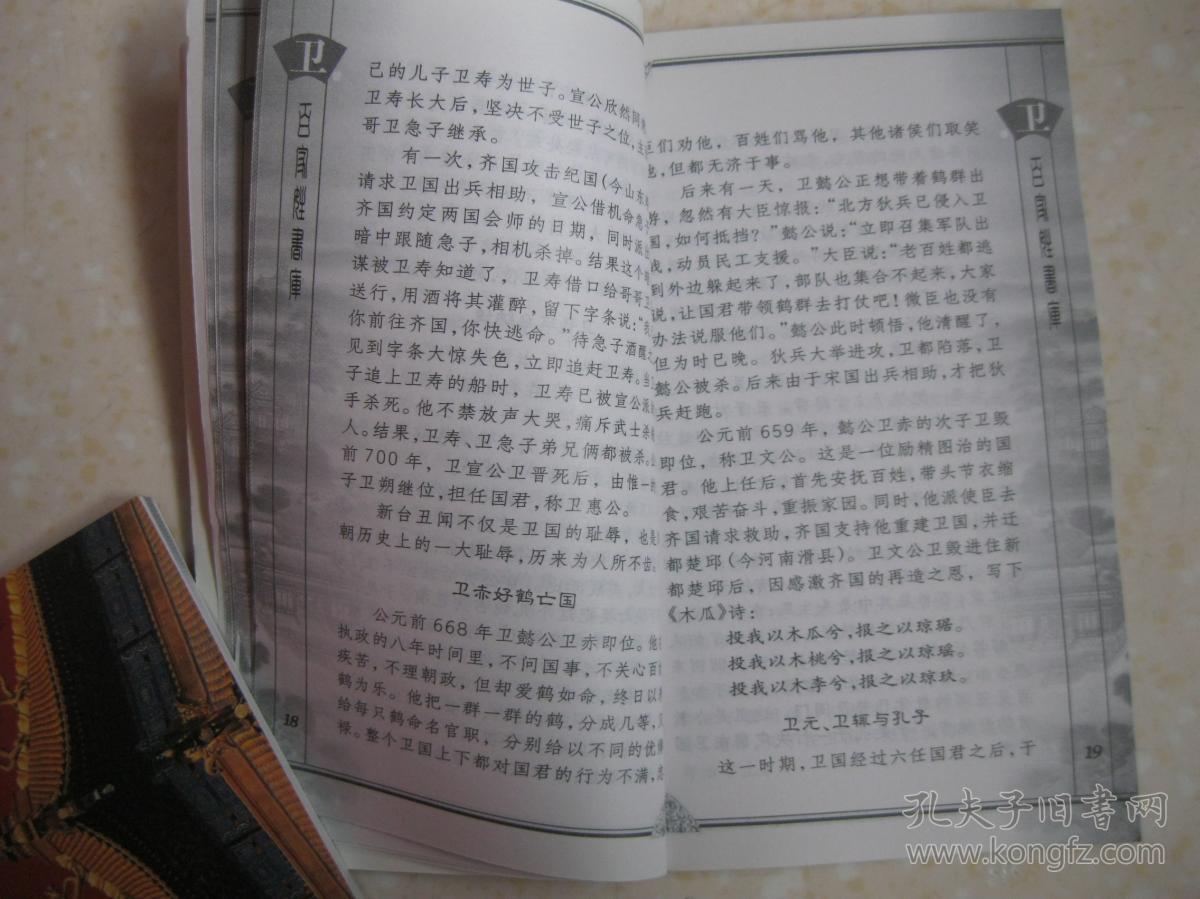 卫
百家姓書庫
己的儿子卫寿为世子。宣公欣然同
卫寿长大后，坚决不受世子之位，
哥卫急子继承。
有一次，齐国攻击纪国(今山东
请求卫国出兵相助，宣公借机命急
齐国约定两国会师的日期，同时派
暗中跟随急子，相机杀掉。结果这个
谋被卫寿知道了，卫寿借口给哥哥
送行，用酒将其灌醉，留下字条说：“
你前往齐国，你快逃命。”待急子酒醒
见到字条大惊失色，立即追赶卫寿。当
子追上卫寿的船时，卫寿已被宣公派
手杀死。他不禁放声大哭，痛斥武士杀
人。结果，卫寿、卫急子弟兄俩都被杀。
前700年，卫宣公卫晋死后，由惟一
子卫朔继位，担任国君，称卫惠公。
新台丑闻不仅是卫国的耻辱，也是
朝历史上的一大耻辱，历来为人所不齿。
卫赤好鹤亡国
公元前668年卫懿公卫赤即位。他
执政的八年时间里，不问国事，不关心百
疾苦，不理朝政，但却爱鹤如命，终日以
鹤为乐。他把一群一群的鹤，分成几等，
给每只鹤命名官职，分别给以不同的优
禄。整个卫国上下都对国君的行为不满，
18
卫
百家姓書庫
们劝他，百姓们骂他，其他诸侯们取笑
，但都无济于事。
后来有一天，卫懿公正想带着鹤群出
，忽然有大臣惊报：“北方狄兵已侵入卫
国，如何抵挡？”懿公说：“立即召集军队出
，动员民工支援。”大臣说：“老百姓都逃
到外边躲起来了，部队也集合不起来，大家
说，让国君带领鹤群去打仗吧！微臣也没有
办法说服他们。”懿公此时顿悟，他清醒了，
但为时已晚。狄兵大举进攻，卫都陷落，卫
懿公被杀。后来由于宋国出兵相助，才把狄
兵赶跑。
公元前659年，懿公卫赤的次子卫毁
即位，称卫文公。这是一位励精图治的国
君。他上任后，首先安抚百姓，带头节衣缩
食，艰苦奋斗，重振家园。同时，他派使臣去
齐国请求救助，齐国支持他重建卫国，并迁
都楚邱(今河南滑县)。卫文公卫毁进住新
都楚邱后，因感激齐国的再造之恩，写下
《木瓜》诗：
投我以木瓜兮，报之以琼琚。
投我以木桃兮，报之以琼瑶。
投我以木李兮，报之以琼玖。
卫元、卫辄与孔子
这一时期，卫国经过六任国君之后，于
19
孔夫子旧书网
www.kongfz.com